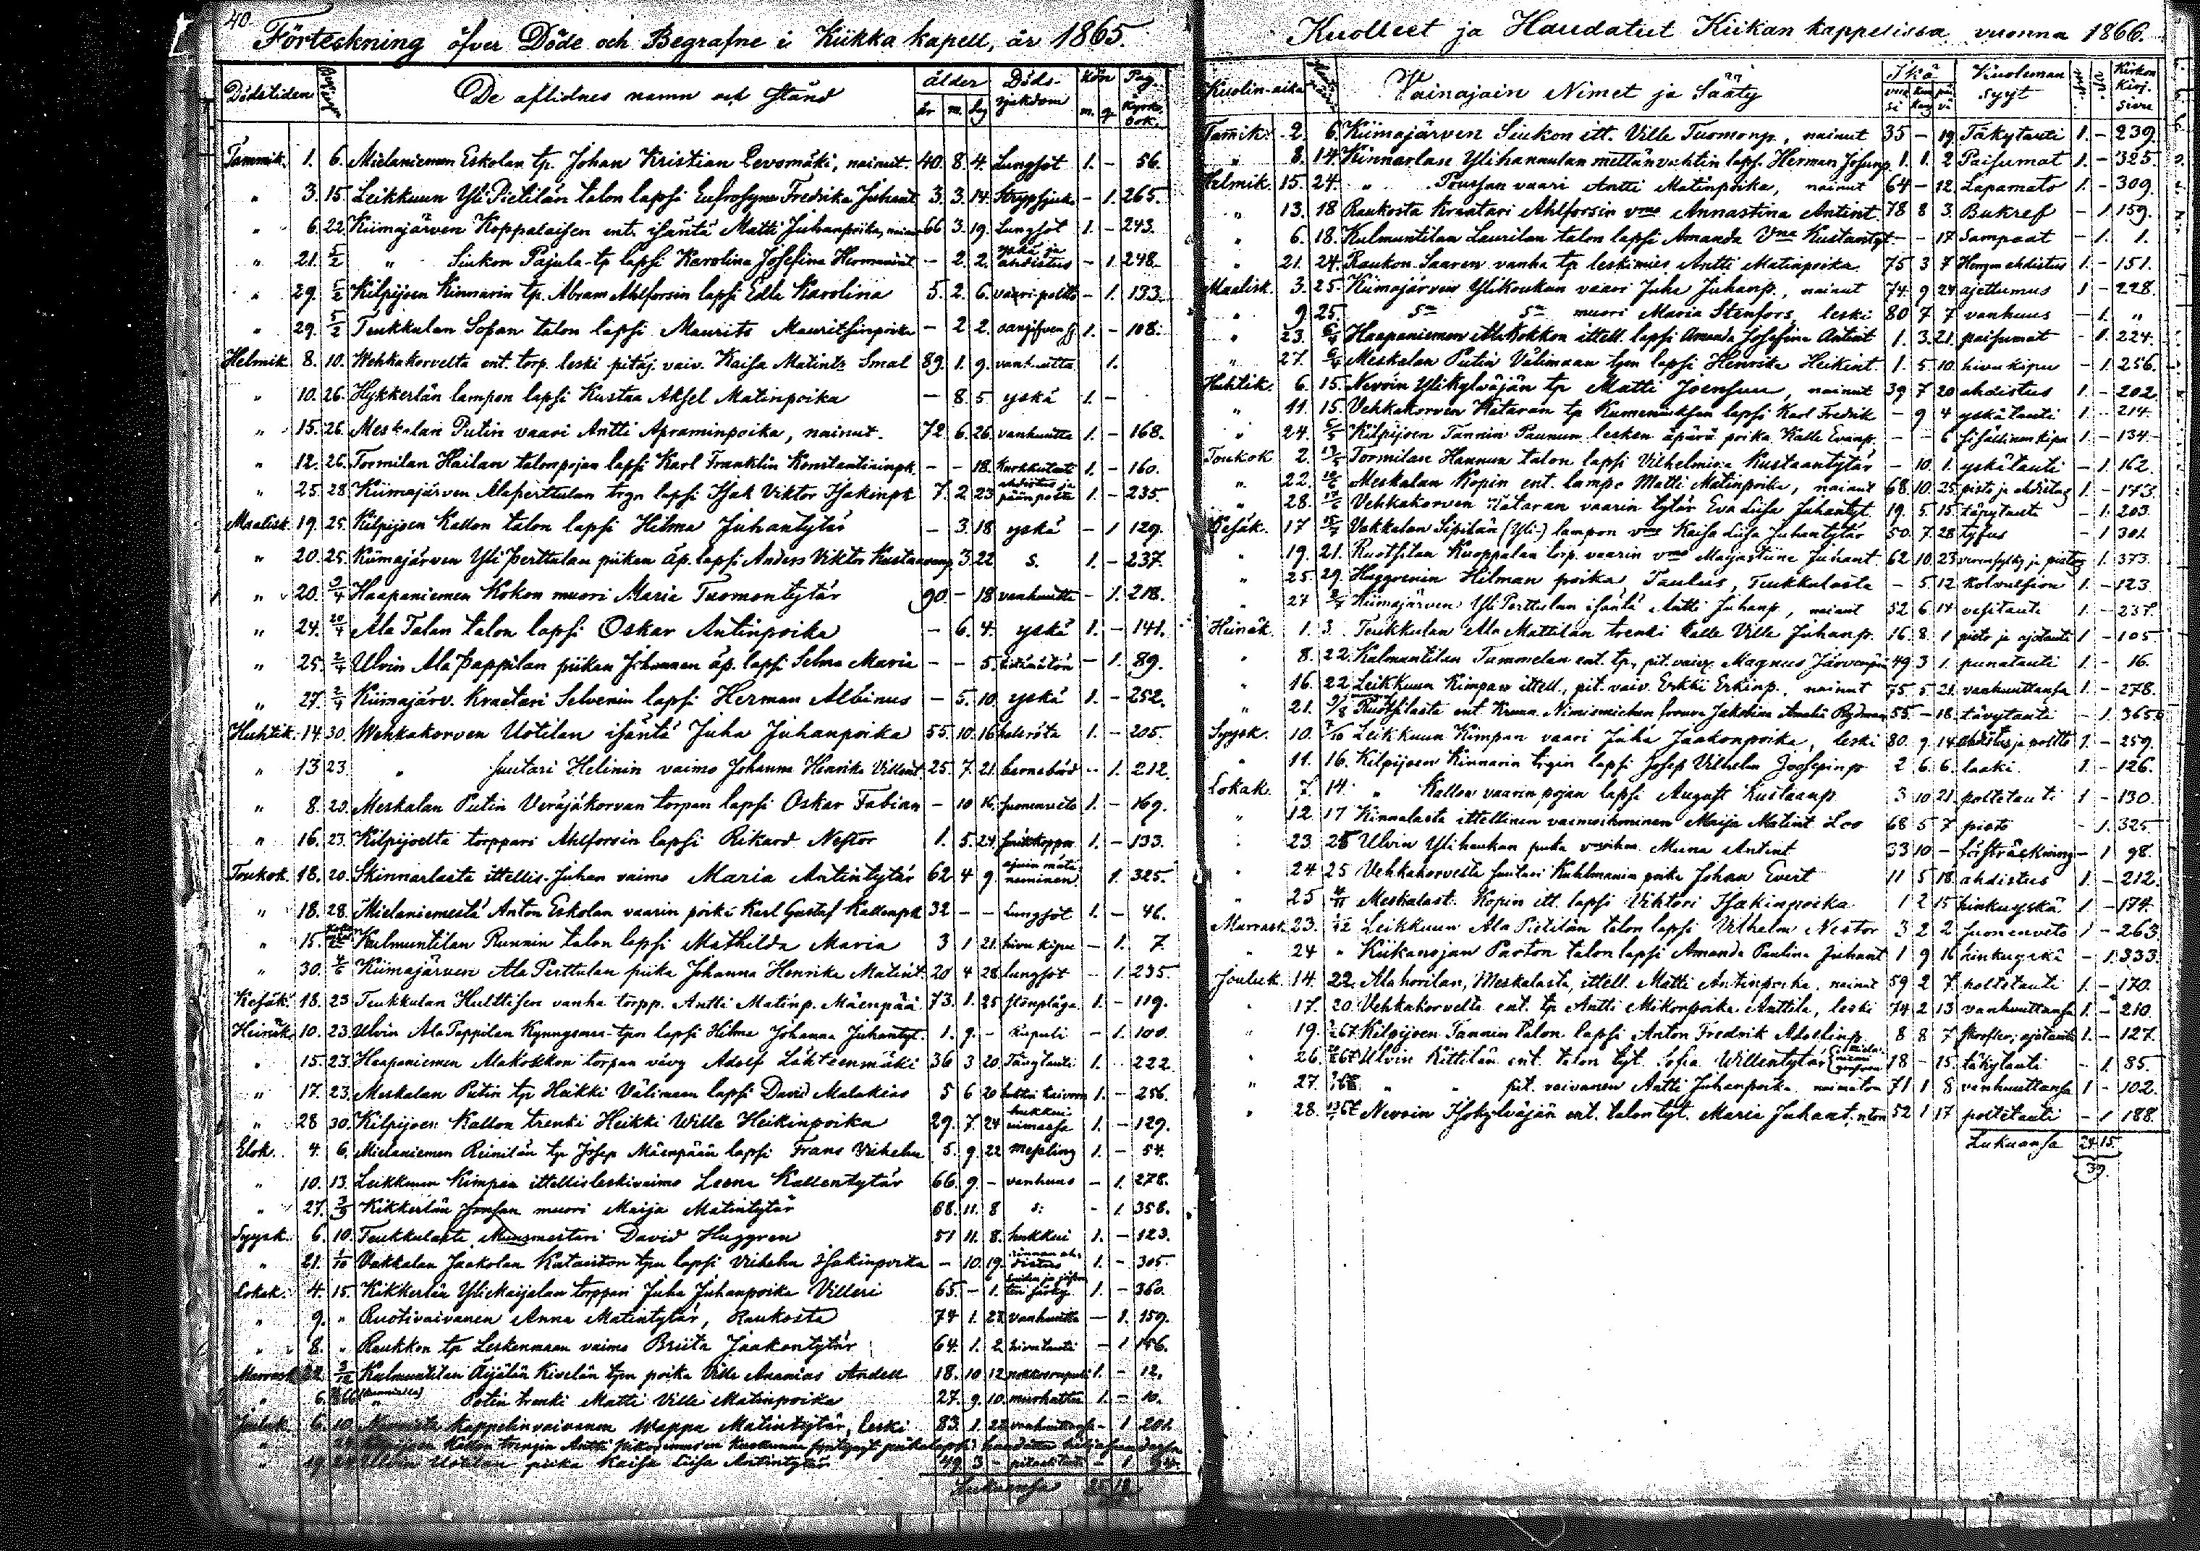 40.
Förteckning öfver Döde och Begrafne i Kiikka kapell, år 1865.
Dödstiden De aflidnes namn och stånd ålder Döds-sjukdom Kön Pag. Kyrko bok.
år m. dag m. q.
Tammik. 1. 6. Mielaniemen Eskolan tp. Johan Kristian Levomäki, nainut. 40. 8. 4. Lungsot 1. - 56.
" 3. 15. Leikkuun Yli Pietilän talon lapsi Eufrosyna Fredrika Juhant. 3. 3. 14. Strypsjuka - 1. 265.
" 6. 22. Kiimajärven Koppalaisen ent. isäntä Matti Juhanpoika, nainut 66 3. 19. Lungsot 1. - 243.
" 21. 5/2 " Siukon Pajula tp lapsi Karolina Josefina Hermanint. - 2. 2. yskä ja ahdistus - 1. 248.
" 29. 5/2 Kilpijoen Kinnarin tp. Abram Ahlforsin lapsi Edla Karolina 5. 2. 6. - 1. 133.
" 29. 5/2 Teukkulan Sofan talon lapsi Maurits Mauritsinpoika - 2 2. 1. - 108.
Helmik. 8. 10. Wehkakorvelta ent. torp. leski pitäj. vaiv. Kaisa Matint. Smal 89. 1. 9. vanhuutta 1.
" 10. 26. Hykkerlän lampon lapsi Kustaa Aksel Matinpoika - 8 5 yskä 1. -
" 15. 26. Meskalan Putin vaari Antti Apraminpoika, nainut. 72 6. 26. vanhuutta 1. - 168.
" 12. 26. Tormilan Hailan talonpojan lapsi Karl Franklin Konstantininpk. - - 18. Kurkkutauti 1. - 160.
" 25. 28. Kiimajärven Alaperttulan trgn lapsi Isak Viktor Isakinpk 7. 2 23 ahdistus ja 1. - 235.
Maalisk. 19. 25. Kilpijoen Kallon talon lapsi Hilma Juhantytär - 3. 18 yskä - 1 129.
" 20. 25. Kiimajärven Yli Perttulan piikan äp. lapsi Anders Viktor Kustaanp. 3. 22 s. 1. - 237.
" 20. 2/4 Haapaniemen Kokon muori Maria Tuomontytär 90. - 18 vanhuutta - 1. 218.
" 24. Ala Talan talon lapsi Oskar Antinpoika - 6. 4. yskä 1. - 141.
" 25. 2/4 Ulvin Ala Pappilan piikan Johannan äp. lapsi Selma Maria - - 5. - 1. 89.
" 27. 2/4 Kiimajärv. Kraatari Selvenin lapsi Herman Albinus - 5. 10. yskä 1. - 252.
Huhtik. 14. 30. Wehkakorven Uotilan isäntä Juha Juhanpoika 55. 10. 16 1. - 205.
" 13 23. " suutari Helinin vaimo Johanna Henrika Villent. 25. 7. 21. barnsbörd - 1. 212.
" 8. 23. Meskalan Putin Veräjäkorvan torpan lapsi Oskar Fabian - 10 16. suonenveto 1. - 169.
" 16. 23. Kilpijoelta torppari Ahlforsin lapsi Rikard Nestor 1. 5. 24. 1. - 133.
Toukok. 18. 20. Skinnarlasta itellis. Juhan vaimo Maria Antintytär 62 4 9. 1. 325.
" 18. 28. Mielaniemestä Anton Eskolan vaarin poika Karl Gustaf Kallenpk 32 - - Lungsot 1. - 46.
" 15. Kulmuntilan Runnin talon lapsi Mathilda Maria 3 1 21. hivu kipu - 1. 7.
" 30. 4/6 Kiimajärven Ala Perttulan piika Johanna Henrika Matint. 20 4 28. lungsot - 1 235.
Kesäk. 18. 23 Teukkulan Hulttisen vanha torpp. Antti Matinp. Mäenpää 73. 1. 25 1. - 119.
Heinäk. 10. 23. Ulvin Ala Pappilan Kynnysmaa tpn lapsi Hilma Johanna Juhantyt. 1. 9. - Kupuli - 1. 100.
" 15. 23. Haapaniemen Alakokkon torpan vävy Adolf Lähteenmäki 36 3 20. 1. 222.
" 17. 23. Meskalan Putin tp Heikki Välimaan lapsi David Malakias 5 6 20 1. - 256.
" 28 30. Kilpijoen Kallon trenki Heikki Wille Heikinpoika 29. 7. 24 hukkui uimassa 1. - 129.
Elok. 4. 6. Mielaniemen Reinilän tp Josep Mäenpään lapsi Frans Wilhelm 5. 9. 22 messling 1. - 54.
" 10. 13. Leikkuun Kimpaa ittellisleskivaimo Leena Kallentytär 66. 9. - vanhuus - 1. 278.
" 27. 3/9 Kikkerlän muori Maija Matintytär 68. 11. 8 s: - 1. 358.
Syysk. 6. 10. Teukkulasta David Huggren 51 11. 8. hukkui 1. - 123.
" 21. 1/10 Vakkalan Jaakolan Kataiston tpn lapsi Vilhelm Isakinpoika - 10. 19. rinnan ahdistus 1. - 305.
Lokak. 4. 15. Kikkerlän Ylikaijalan torppari Juha Juhanpoika Villeri 65. - 1. 1. - 360.
" 9. " Ruotivaivanen Anna Matintytär, Raukosta 74 1. 27. vanhuutta - 1. 159.
" 8. " Raukkon tp Leskenmaan vaimo Briita Jaakontytär 64. 1. 2. hivutauti - 1 156.
Marrask. 22. 3/12 Kulmuntilan Äijälän Kivelän tpn poika Ville Ananias Andell 18. 10 12 1. - 12.
" 6. Potin trenki Matti Ville Matinpoika 27. 9. 10. murhattu 1. - 10.
Jouluk. 6. 10. kappelin vaivanen Wappu Matintytär, Leski 83. 1. 22. vanhuuttansa - 1 201.
" Kallon trengin Antti
" 19. Ulvin Uotilan piika Kaisa Liisa Antintytär 49. 3 - - 1
Lukuansa 25 18.
Kuolleet ja Haudatut Kiikan kappelissa vuonna 1866.
Kuolin-aika Vainajain Nimet ja Sääty Ikä Kuoleman syyt Kirkon Kirj. Sivu
Tamik. 2. 6. Kiimajärven Siukon itt. Ville Tuomonp., nainut 35 - 19. Täkytauti 1. - 239.
" 8. 14. Kinnarlan Ylihannulan mettänvahtin laps. Herman Josunp. 1. 1. 2 Paisumat 1. - 325.
Helmik. 15. 24. " Toussan vaari Antti Matinpoika, nainut 64 - 12. Lapamato 1. - 309.
" 13. 18 Raukosta Kraatari Ahlforsin vmo Annastina Antint. 78 8 3. Bukref - 1 159.
" 6. 18. Kulmuntilan Laurilan talon lapsi Amanda Vna Kustantyt - - 17 Sampaat - 1. 1.
" 21. 24. Raukon Saaren vanha tp leskimies Antti Matinpoika 75 3 7 Hengen ahdistus 1. - 151.
Maalisk. 3. 25. Kiimajärven Ylikoukan vaari Juha Juhanp., nainut 74. 9 24 ajettumus 1 - 228.
" 9 25. Sn Sn muori Maria Stenfors, leski 80 7 7 vanhuus - 1. "
" 23. Haapaniemen Alakokkon ittell. lapsi Amanda Josefina Antint 1. 3. 21. paisumat - 1. 224.
" 27. Meskalan Putin Välimaan tpn lapsi Henrika Heikint. 1. 5. 10. hivu kipu - 1. 256.
Huhtik. 6. 15. Nevoin Ylikylväjän tp Matti Joensuu, nainut 39 7 20 ahdistus 1. - 202.
" 11. 15. Vehkakorven Kätaran tp lapsi Karl Fredrik - 9 4 yskätauti 1. - 214.
" 24. Kilpijoen Tannin Paunun lesken äpärä poika Kalle Evanp. - - 6 sisällinen kipu 1. - 134.
Toukok 2. Tormilan Hannun talon lapsi Vilhelmina Kustaantytär - 10. 1. yskätauti - 1. 162.
" 22. Meskalan Kopin ent. lampo Matti Matinpoika, nainut 68. 10. 25 pisto ja ahdistus 1. - 173.
" 28. Vehkakorven Hätaran vaarin tytär Eva Liisa Juhantyt. 19. 5. 15. - 1. 203.
Kesäk. 17 Vakkalan Sipilän (Yli-) lampon vmo Kaisa Liisa Juhantytär 50. 7. 28 tyfus - 1 301.
" 19. 21. Ruotsilan Kuoppalan torp. vaarin vmo Maijastiina Juhant 62 10. 23 verensyöksy ja pistos 1. 373.
" 25. 29. Huggrenin Hilman poika, Paulus, Teukkulasta - 5. 12 1. - 123.
" 27 2/7 Kiimajärven Yli Perttulan isäntä Antti Juhanp., nainut 52 6 14 vesitauti 1. - 237.
Heinäk. 1. 3. Teukkulan Ala Mattilan trenki Kalle Ville Juhanp. 16. 8. 1 pisto ja 1. - 105
" 8. 22. Kulmuntilan Tammelan ent. tp, pit. vaiv. Magnus Järvenpää 49 3 1. punatauti 1. - 16.
" 16. 22. Leikkuun Kimpaa ittell., pit. vaiv. Erkki Erkinp., nainut 75. 5 21. vanhuuttansa 1. - 278.
" 21. Ruotsilasta ent. Kruun. Nimismiehen frouva Jakobina Amalia Rydman 55. - 18. - 1. 365.
Syysk. 10. Leikkuun Kimpan vaari Juha Jaakonpoika, leski 80. 9. 14. ahdistus ja poltto 1. - 259.
" 11. 16. Kilpijoen Kinnarin trgin lapsi Josep Vilhelm Joosepinp 2 6 6. laaki 1. - 126.
Lokak. 7. 14. " Kallon vaarin pojan lapsi August Kustaanp 3 10 21. poltetauti 1 - 130.
" 12. 17 Kinnalasta ittellinen vaimoihminen Maija Matint. Loo 68 5 7 pisto - 1. 325
" 23. 28 Ulvin Ylihaukan Miina Antint 33 10 - - 1 98.
" 24 25 Vehkakorvelta suutari Kuhlmanin poika Johan Evert 11 5 18 ahdistus 1. - 212.
" 25 Meskalast. Kopin itt. lapsi Vihtori Isakinpoika 1 2 15 hinkuyskä 1 - 174.
Marrask 23. Leikkuun Ala Pietilän talon lapsi Vilhelm Nestor 3 2 2 suonenveto 1 - 263.
" 24 " Kiikanojan Parton talon lapsi Amanda Paulina Juhant 1 9 16 hinkuyskä - 1. 333.
Jouluk. 14. 22. Alahorilan, Meskalasta, ittell. Matti Antinpoika, nainut 59 2 7. poltetauti 1. - 170.
" 17. 20. Vehkakorvelta ent. tp Antti Mikonpoika Anttila, leski 74 2 13 vanhuuttansa 1. - 210.
" 19. Kilpijoen Tannin talon lapsi Anton Fredrik Abelinp. 8 8 7 1. - 127.
" 26. Ulvin Kittilän ent. talon tyt. Sofia Willentytär 18 - 15. täkytauti - 1 85.
" 27. " " pit. vaivanen Antti Juhanpoika naimaton 71 1 8 vanhuuttansa 1 - 102.
" 28. Nevoin Isokylväjän ent. talon tyt. Maria Juhant. nton 52 1 17 poltetauti - 1 188.
Lukuansa 24 15.
39.